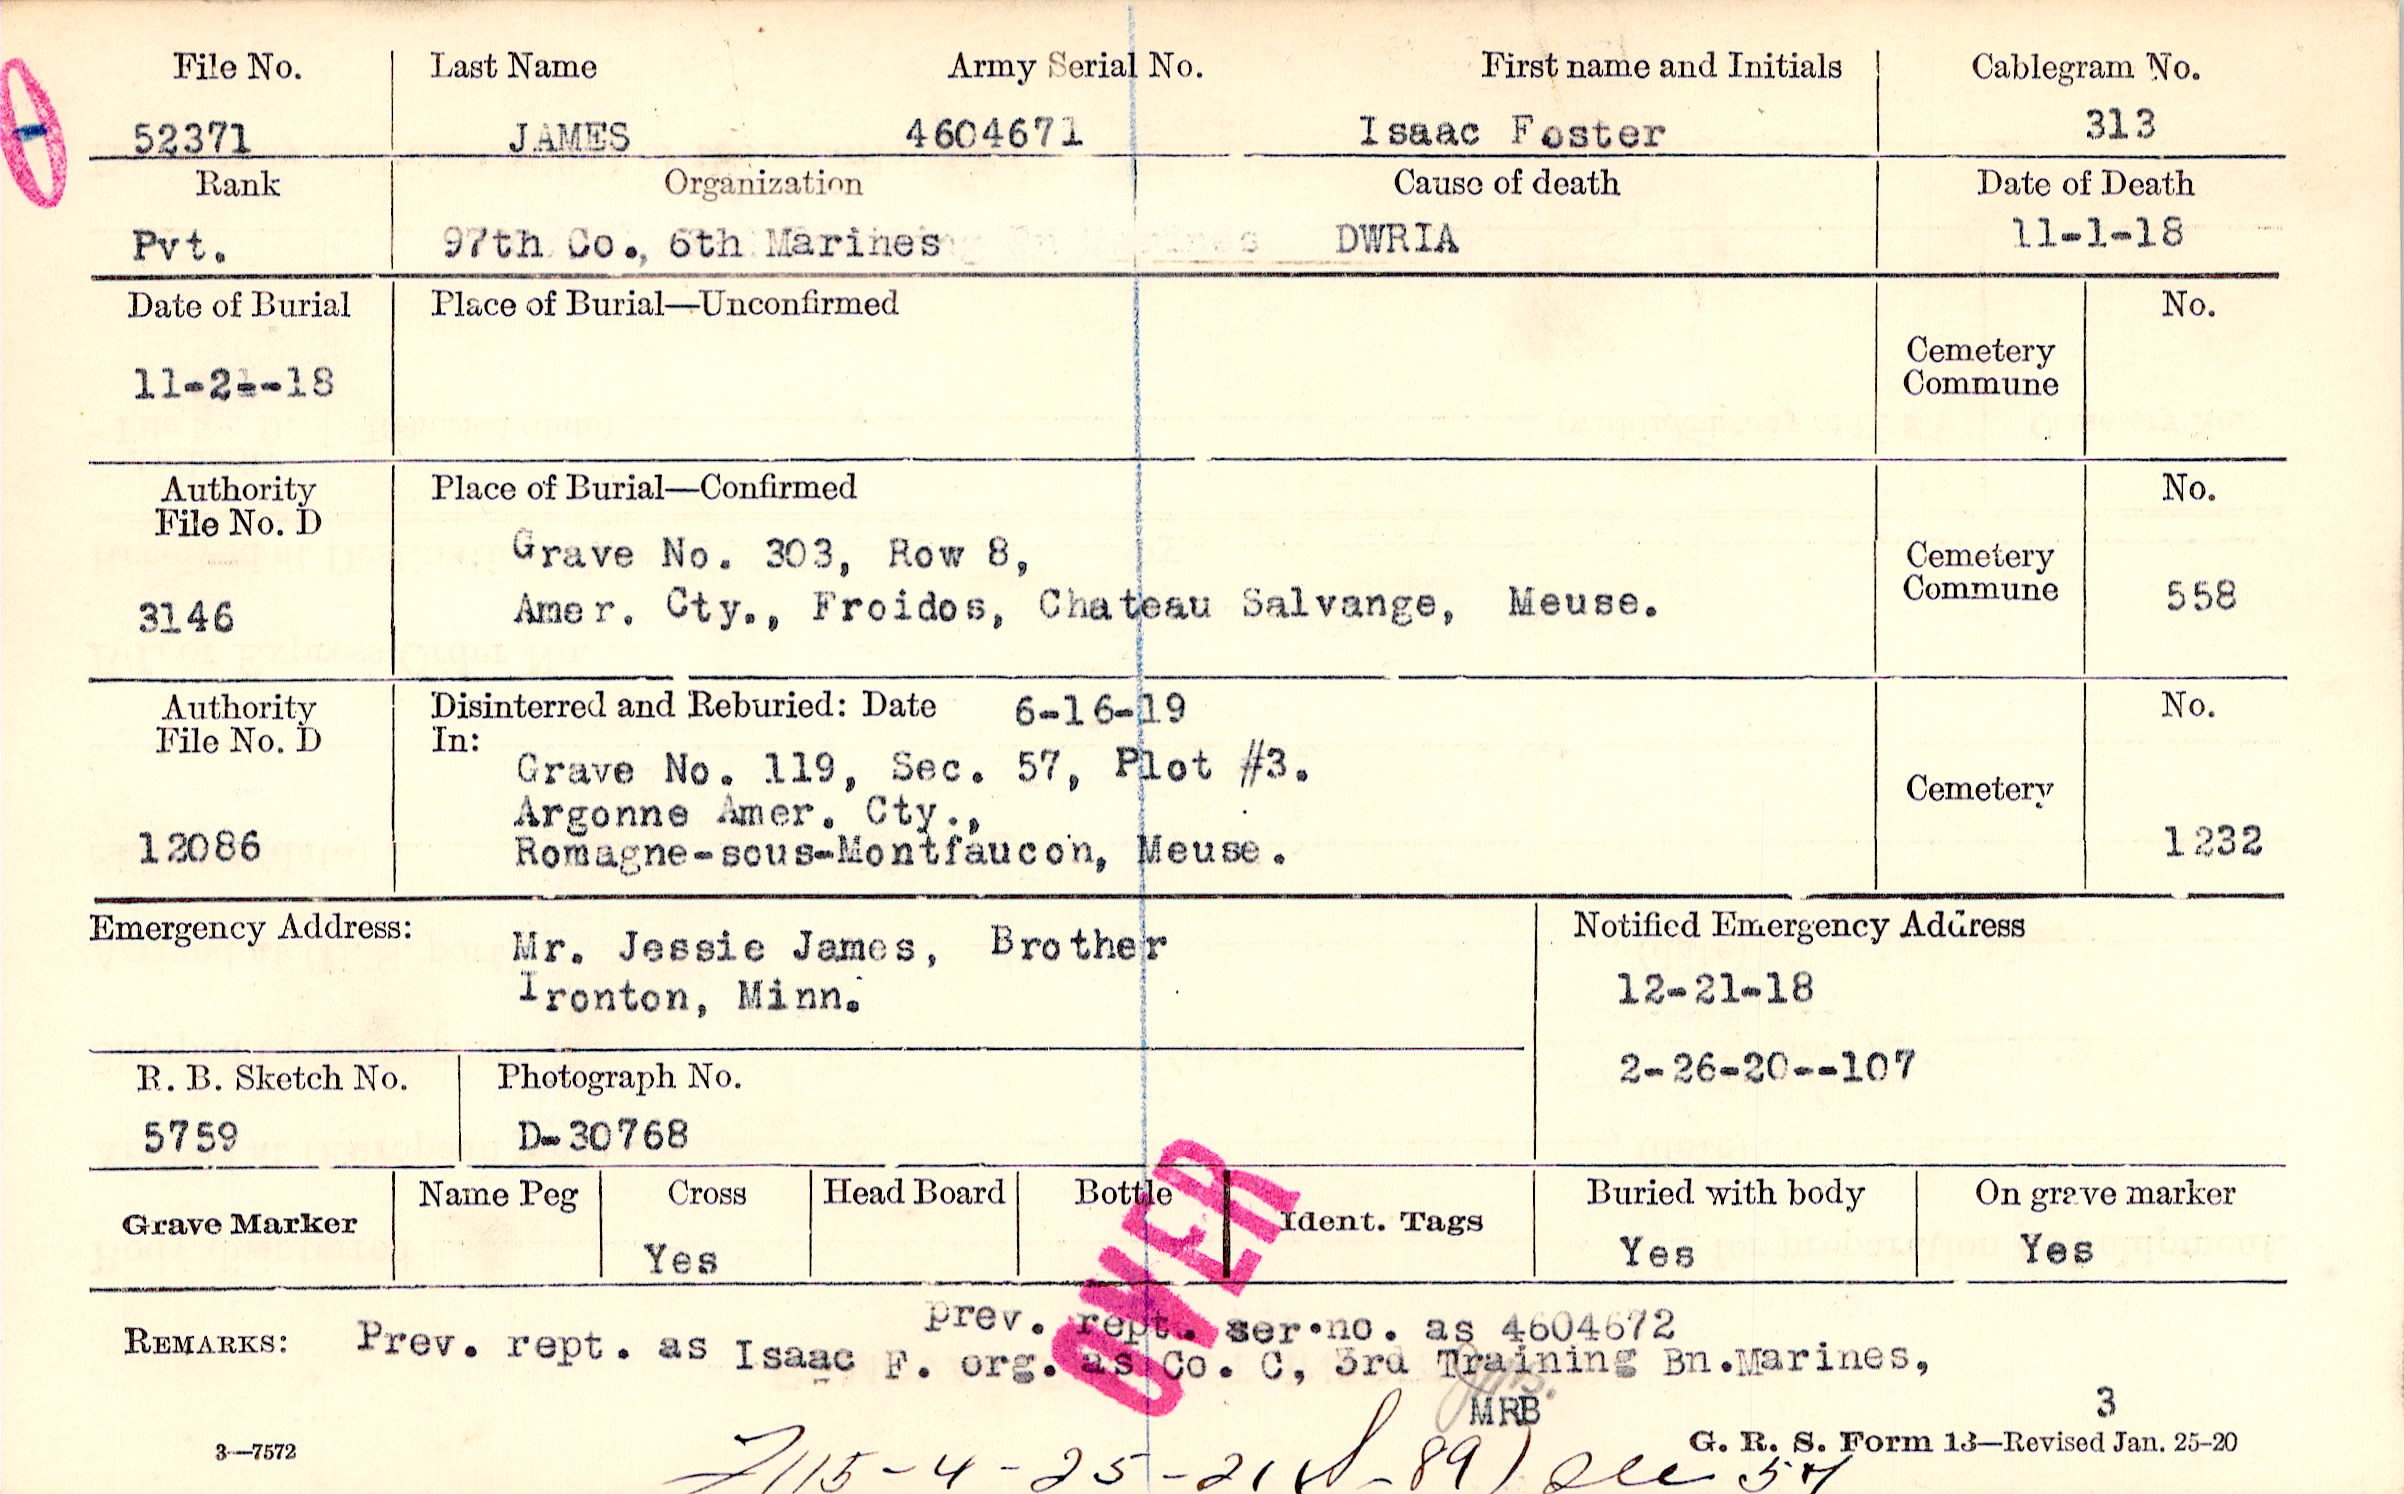 File No. Last Name Army Serial No. First name and Initials Cablegram No.
52371 JAMES 4604671 Isaac Foster 313
Rank Organization Cause of death Date of Death
Pvt. 97th Co., 6th Marines DWRIA 11-1-18
Date of Burial Place of Burial—Unconfirmed No.
Cemetery
Commune
11-2--18
Authority Place of Burial—Confirmed No.
File No. D
Grave No. 303, Row 8,
Cemetery
Commune
3146 Amer. Cty., Froidos, Chateau Salvange, Meuse. 558
Authority Disinterred and Reburied: Date 6-16-19 No.
File No. D In:
Grave No. 119, Sec. 57, Plot #3.
Cemetery
Argonne Amer. Cty.,
12086 Romagne-sous-Montfaucon, Meuse. 1232
Emergency Address: Notified Emergency Address
Mr. Jessie James, Brother
Ironton, Minn. 12-21-18
2-26-20--107
R. B. Sketch No. Photograph No.
5759 D-30768
Name Peg Cross Head Board Bottle Buried with body On grave marker
Grave Marker Ident. Tags
Yes Yes Yes
OVER
prev. rept. ser.no. as 4604672
REMARKS: Prev. rept. as Isaac F. org. as Co. C, 3rd Training Bn.Marines,
MRB 3
3—7572 G. R. S. Form 13—Revised Jan. 25-20
15-4-25-21